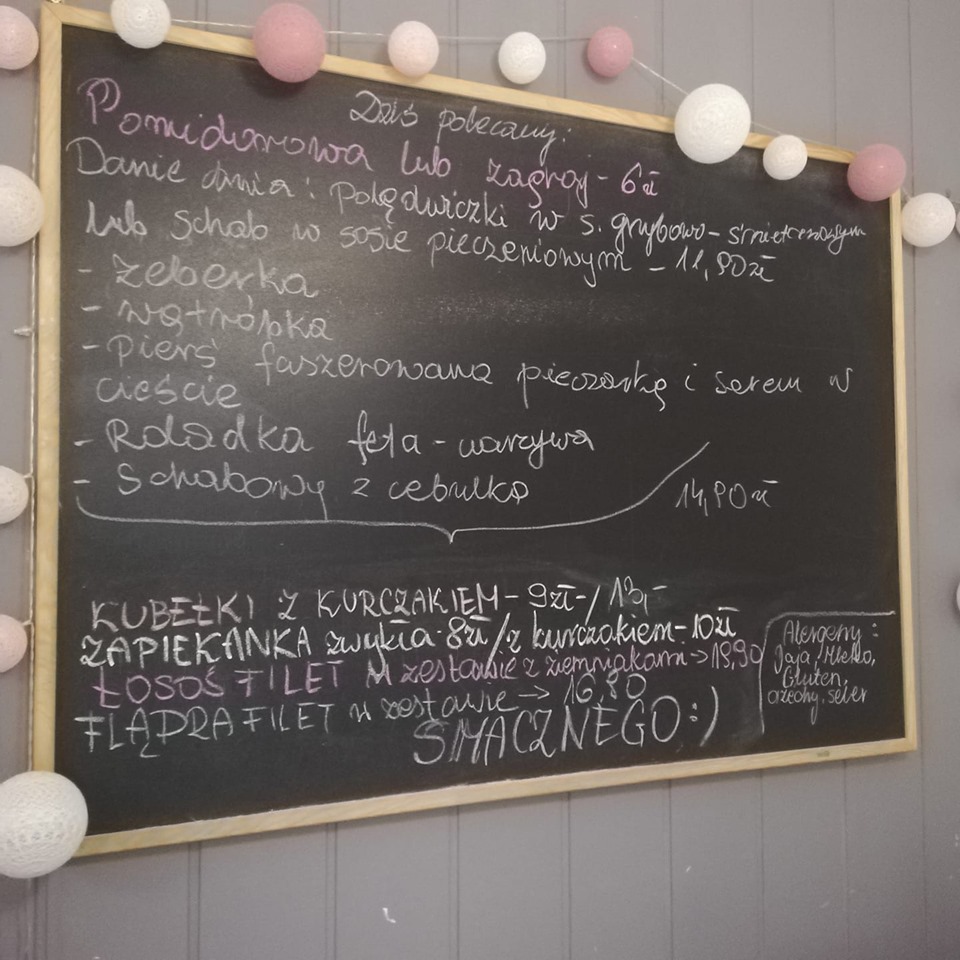 Dziś polecamy:
Pomidorowa lub zagroj - 6 zł
Danie dnia: polędwiczki w s. grzybowo - śmietanowym
lub schab w sosie pieczeniowym - 11,90 zł
- żeberka
- wątróbka
- pierś faszerowana pieczarką i serem w
cieście
- Roladka feta - warzywa
- Schabowy z cebulką
14,90 zł
KUBEŁKI Z KURCZAKIEM - 9 zł - / 13,-
ZAPIEKANKA zwykła - 8 zł / z kurczakiem - 10 zł
ŁOSOŚ FILET w zestawie z ziemniakami -> 18,90
FLĄDRA FILET w zestawie -> 16,80
SMACZNEGO :)
Alergeny:
Jaja, Mleko,
Gluten,
orzechy, seler